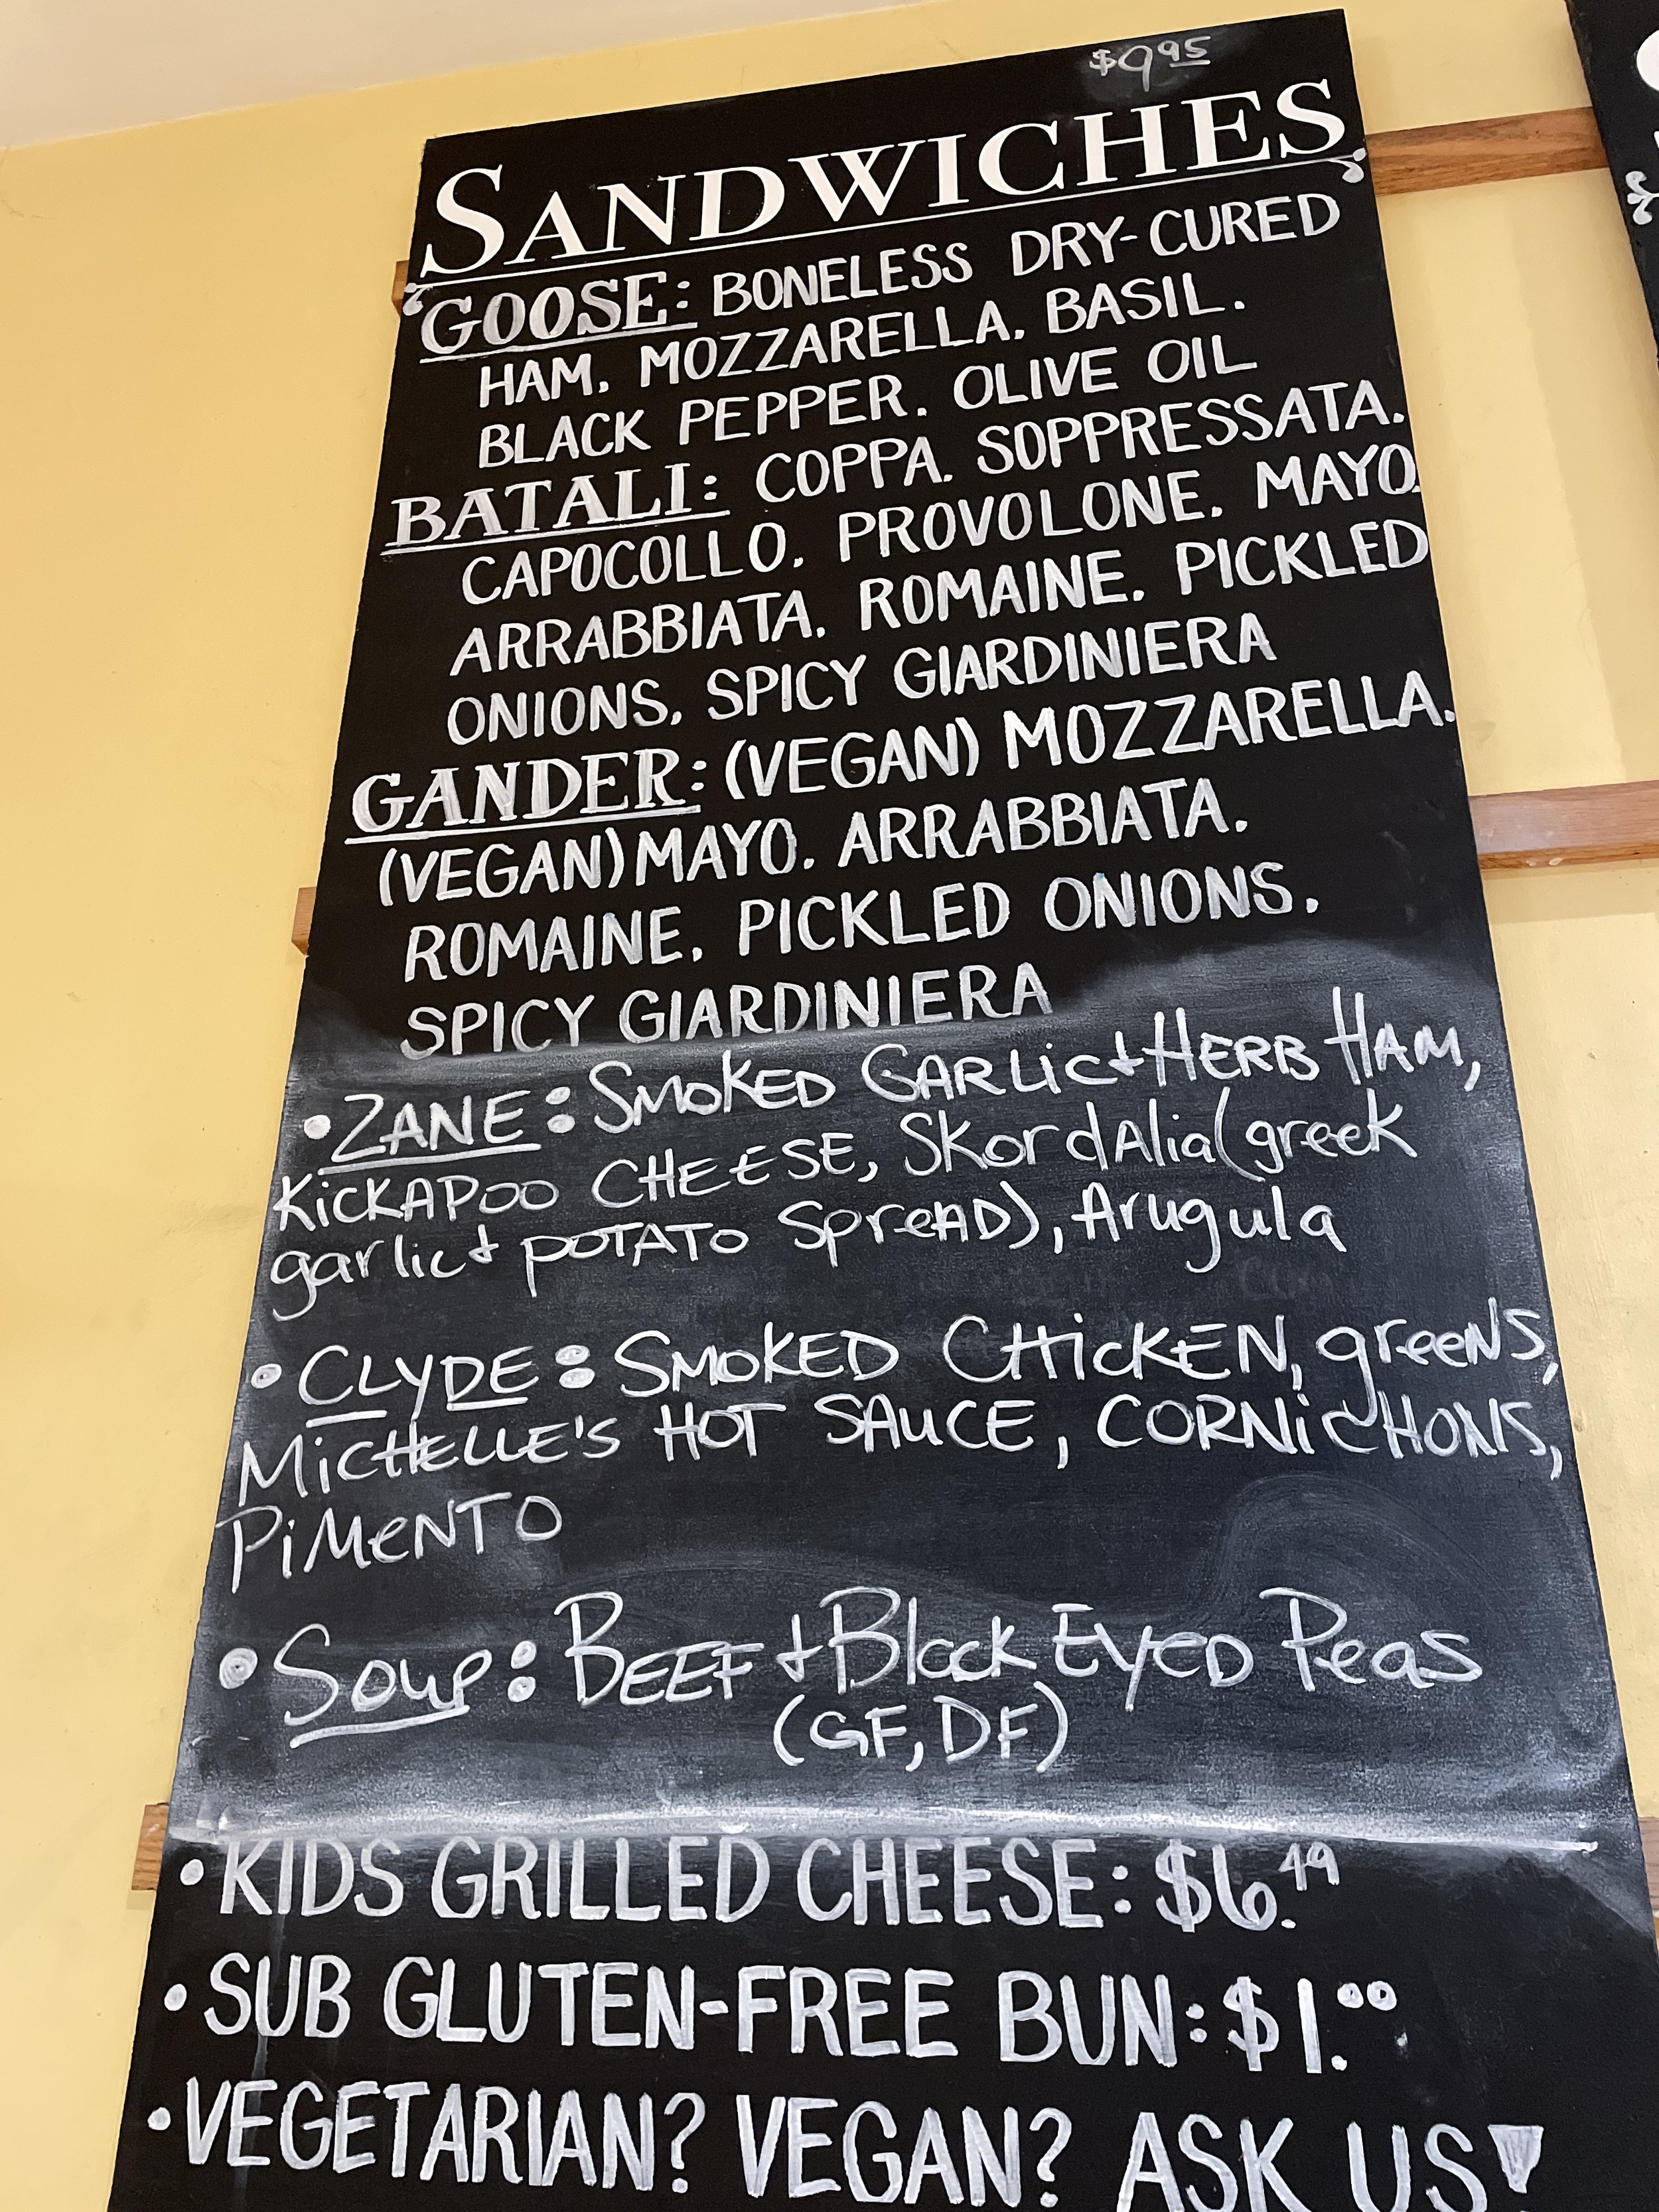 $9.95
SANDWICHES
GOOSE: BONELESS DRY-CURED
HAM. MOZZARELLA. BASIL.
BLACK PEPPER. OLIVE OIL
BATALI: COPPA. SOPPRESSATA.
CAPOCOLLO. PROVOLONE. MAYO.
ARRABBIATA. ROMAINE. PICKLED
ONIONS. SPICY GIARDINIERA
GANDER: (VEGAN) MOZZARELLA.
(VEGAN) MAYO. ARRABBIATA.
ROMAINE. PICKLED ONIONS.
SPICY GIARDINIERA
• ZANE: SMOKED GARLIC + HERB HAM,
KICKAPOO CHEESE, SKORDALIA (greek
garlic + POTATO SPREAD), Arugula
• CLYDE: SMOKED CHICKEN, greens,
MICHELLE'S HOT SAUCE, CORNICHONS,
PIMENTO
• Soup: BEEF + Black EYED Peas
(GF, DF)
• KIDS GRILLED CHEESE: $6.49
• SUB GLUTEN-FREE BUN: $1.00
• VEGETARIAN? VEGAN? ASK US